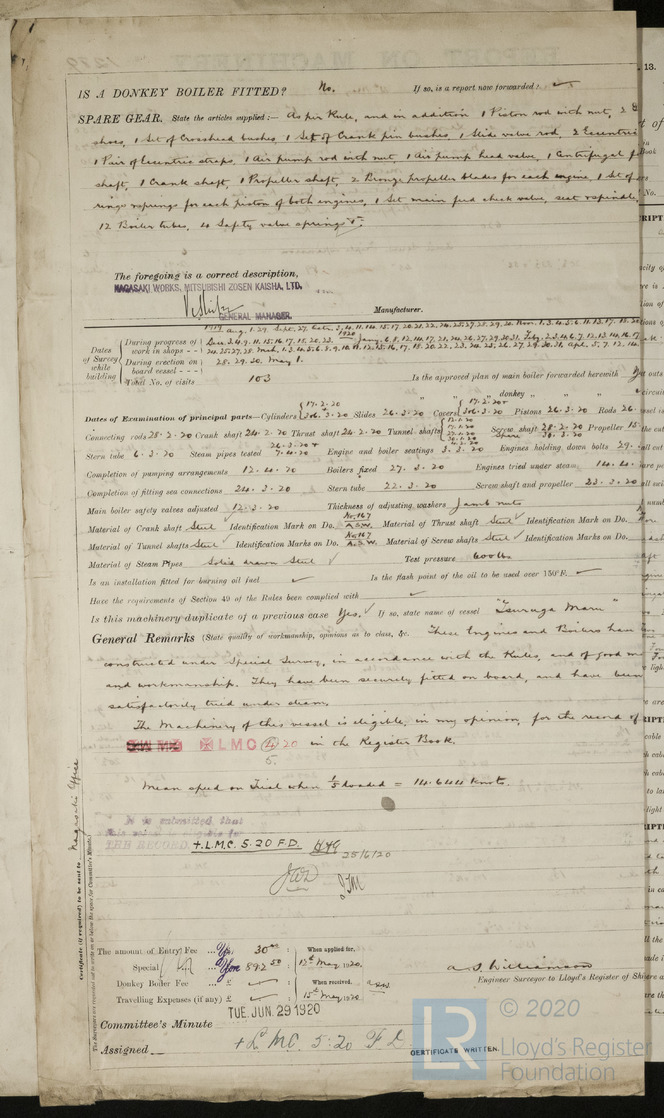 IS A DONKEY BOILER FITTED? No. If so, is a report now forwarded?
SPARE GEAR. State the articles supplied:— As per Rule, and in addition 1 Piston rod with nut, 2
shoes, 1 Set of Crosshead bushes, 1 Set of Crank pin bushes, 1 Slide valve rod, 2 Eccentric
1 Pair of Eccentric straps, 1 Air pump rod with nut, 1 Air pump head valve, 1 Centrifugal
shaft, 1 Crank shaft, 1 Propeller shaft, 2 Bronze propeller blades for each engine, 1 Set of
rings & springs for each piston of both engines, 1 Set main feed check valve, seat & spindle,
12 Boiler tubes, 4 Safety valve springs
The foregoing is a correct description,
NAGASAKI WORKS, MITSUBISHI ZOSEN KAISHA, LTD.
GENERAL MANAGER. Manufacturer.
Dates of Survey while building
During progress of work in shops - -
During erection on board vessel - - -
25. 29. 30. May 1.
Total No. of visits 103
Is the approved plan of main boiler forwarded herewith
" " " donkey " " "
Dates of Examination of principal parts—Cylinders 17.2.20 Slides 26.3.20 Covers 17.2.20 Pistons 26.3.20 Rods 26
Connecting rods 25.2.20 Crank shaft 24.2.20 Thrust shaft 24.2.20 Tunnel shafts Screw shaft 28.2.20 Propeller
Stern tube 6.3.20 Steam pipes tested 7.4.20 Engine and boiler seatings 3.3.20 Engines holding down bolts 29.
Completion of pumping arrangements 12.4.20 Boilers fixed 27.3.20 Engines tried under steam 14.4.
Completion of fitting sea connections 24.3.20 Stern tube 22.3.20 Screw shaft and propeller 23.3.20
Main boiler safety valves adjusted 12.3.20 Thickness of adjusting washers Jamb nuts
Material of Crank shaft Steel Identification Mark on Do. No.167 A.S.W. Material of Thrust shaft Steel Identification Mark on Do.
Material of Tunnel shafts Steel Identification Marks on Do. No.167 A.S.W. Material of Screw shafts Steel Identification Marks on Do.
Material of Steam Pipes Solid drawn Steel Test pressure 600 lbs
Is an installation fitted for burning oil fuel Is the flash point of the oil to be used over 150°F.
Have the requirements of Section 49 of the Rules been complied with
Is this machinery duplicate of a previous case Yes. If so, state name of vessel "Tsuruga Maru"
General Remarks (State quality of workmanship, opinions as to class, &c. These Engines and Boilers have
constructed under Special Survey, in accordance with the Rules, and of good
and workmanship. They have been securely fitted on board, and have been
satisfactorily tried under steam.
The Machinery of this vessel is eligible, in my opinion, for the record of
LMC 4 20 in the Register Book.
5.
Mean speed on Trial when 1/5 loaded = 14.644 knots.
It is submitted that
this vessel is eligible for
THE RECORD. + L.M.C. 5.20 F.D.
25/6/20
Certificate (if required) to be sent to Nagasaki Office
The Surveyors are requested not to write on or below the space for Committee's Minute.
The amount of Entry Fee ... Yen 30.00 : When applied for,
Special ... Yen 892.50 : 12th May 1920.
Donkey Boiler Fee ... £ : When received,
Travelling Expenses (if any) £ : 15th May 1920.
A. S. Williamson
Engineer Surveyor to Lloyd's Register of
TUE. JUN. 29 1920
Committee's Minute
Assigned + L.M.C. 5.20 F.D.
CERTIFICATE WRITTEN.
LR © 2020
Lloyd's Register
Foundation